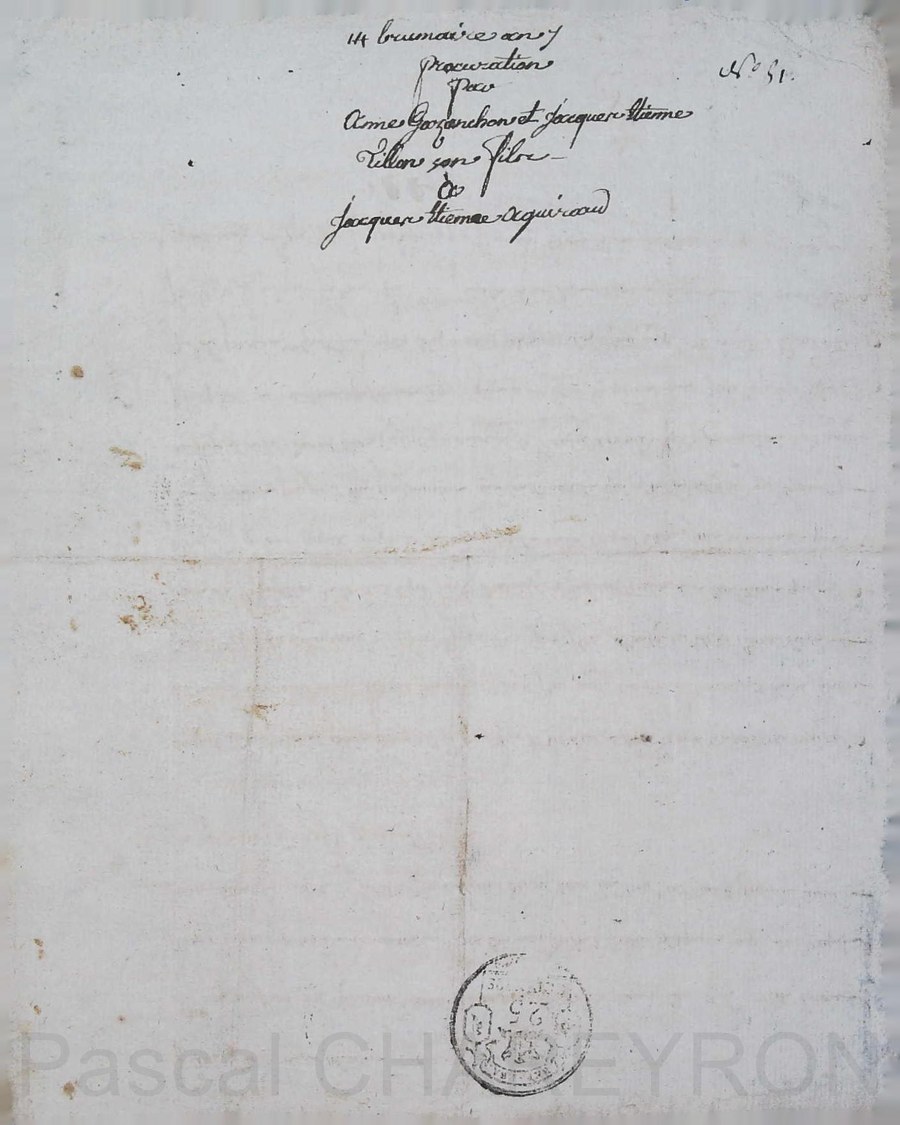 14 brumaire an 7
N° 51.
procuration
par
Anne Gozanchon et Jacques Etienne
Tillon son fils
à
Jacques Etienne Aguiraud
25
Pascal CHAREYRON